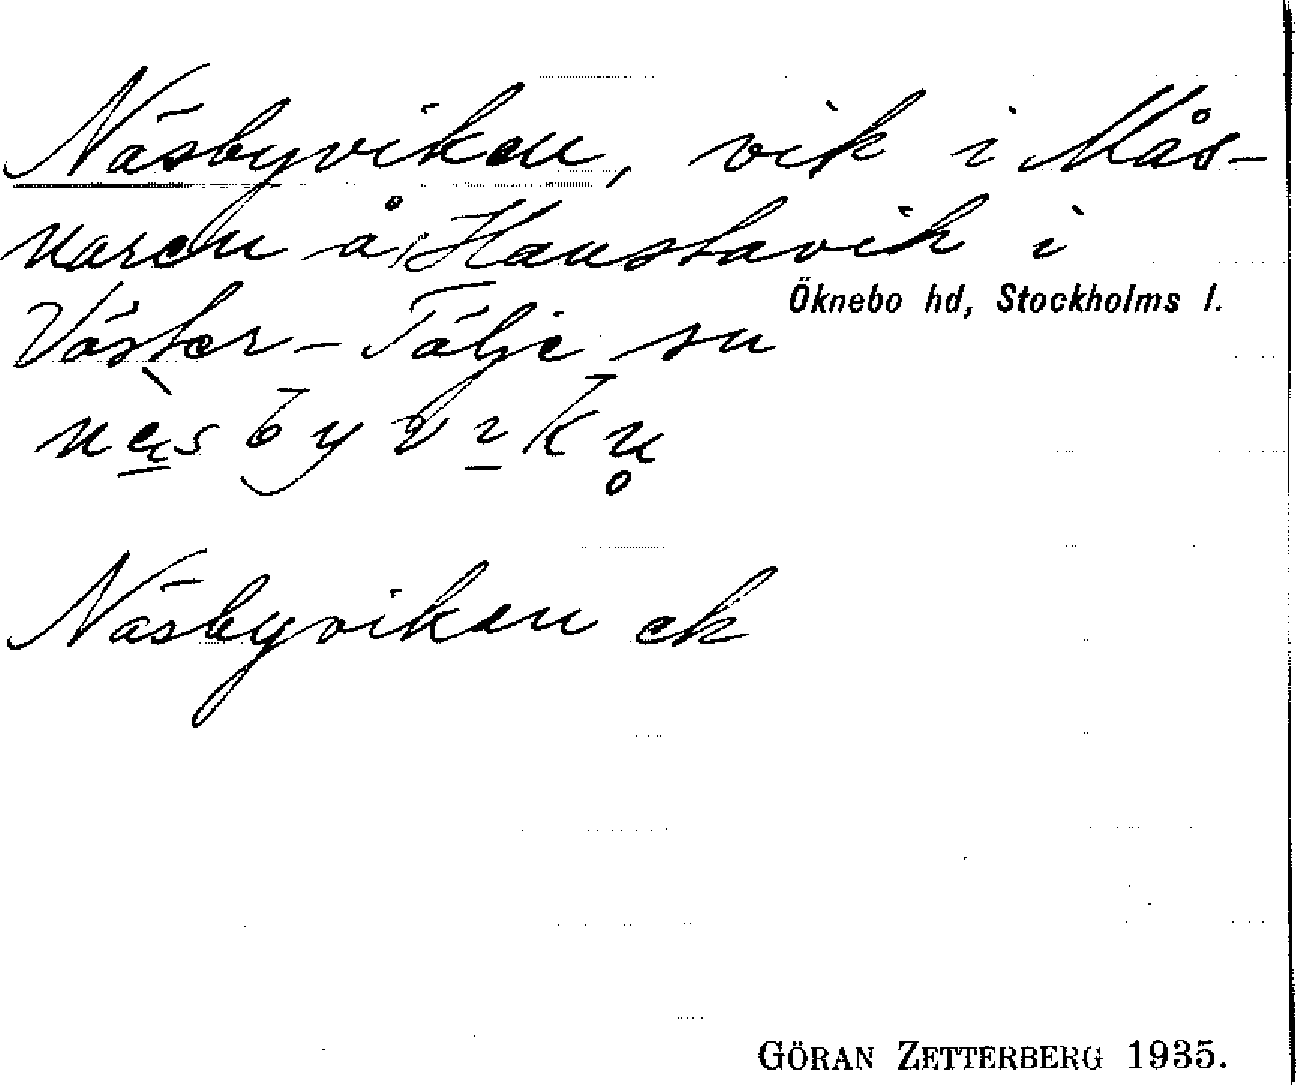 Näsbyviken, vik i Mås-
naren å Hanstavik i
Öknebo hd, Stockholms l.
Väster-Tälje sn
Näsbyviken ek
GÖRAN ZETTERBERG 1935.